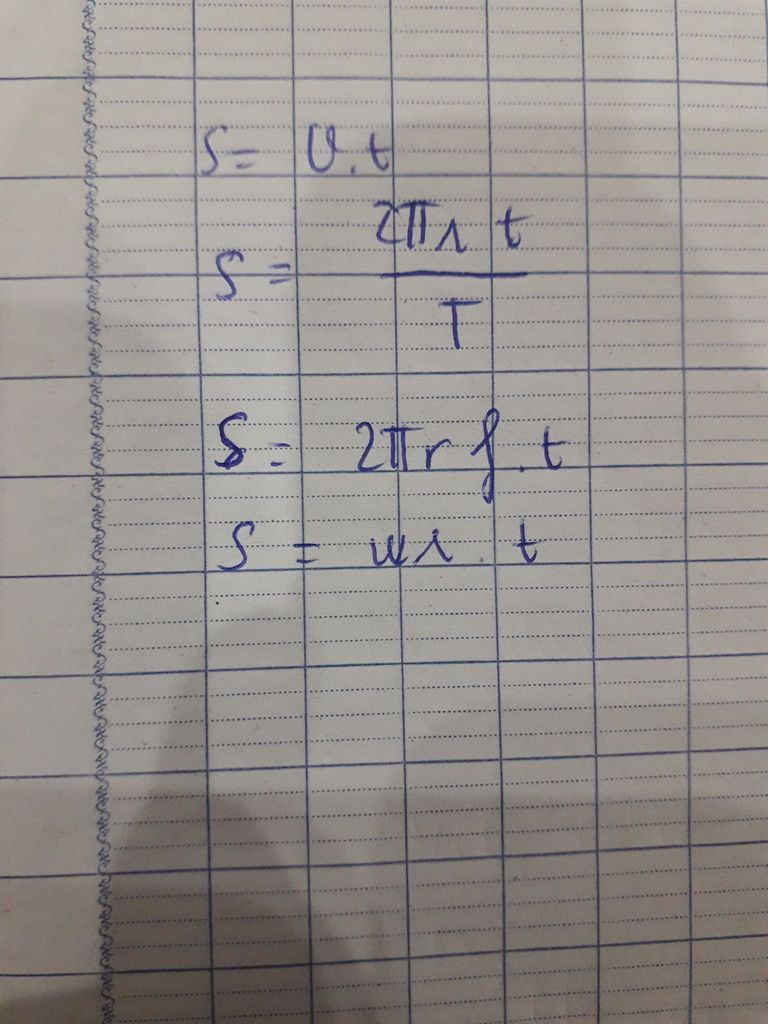 S = v.t
S = 2πr t / T
S = 2πr f.t
S = wr. t